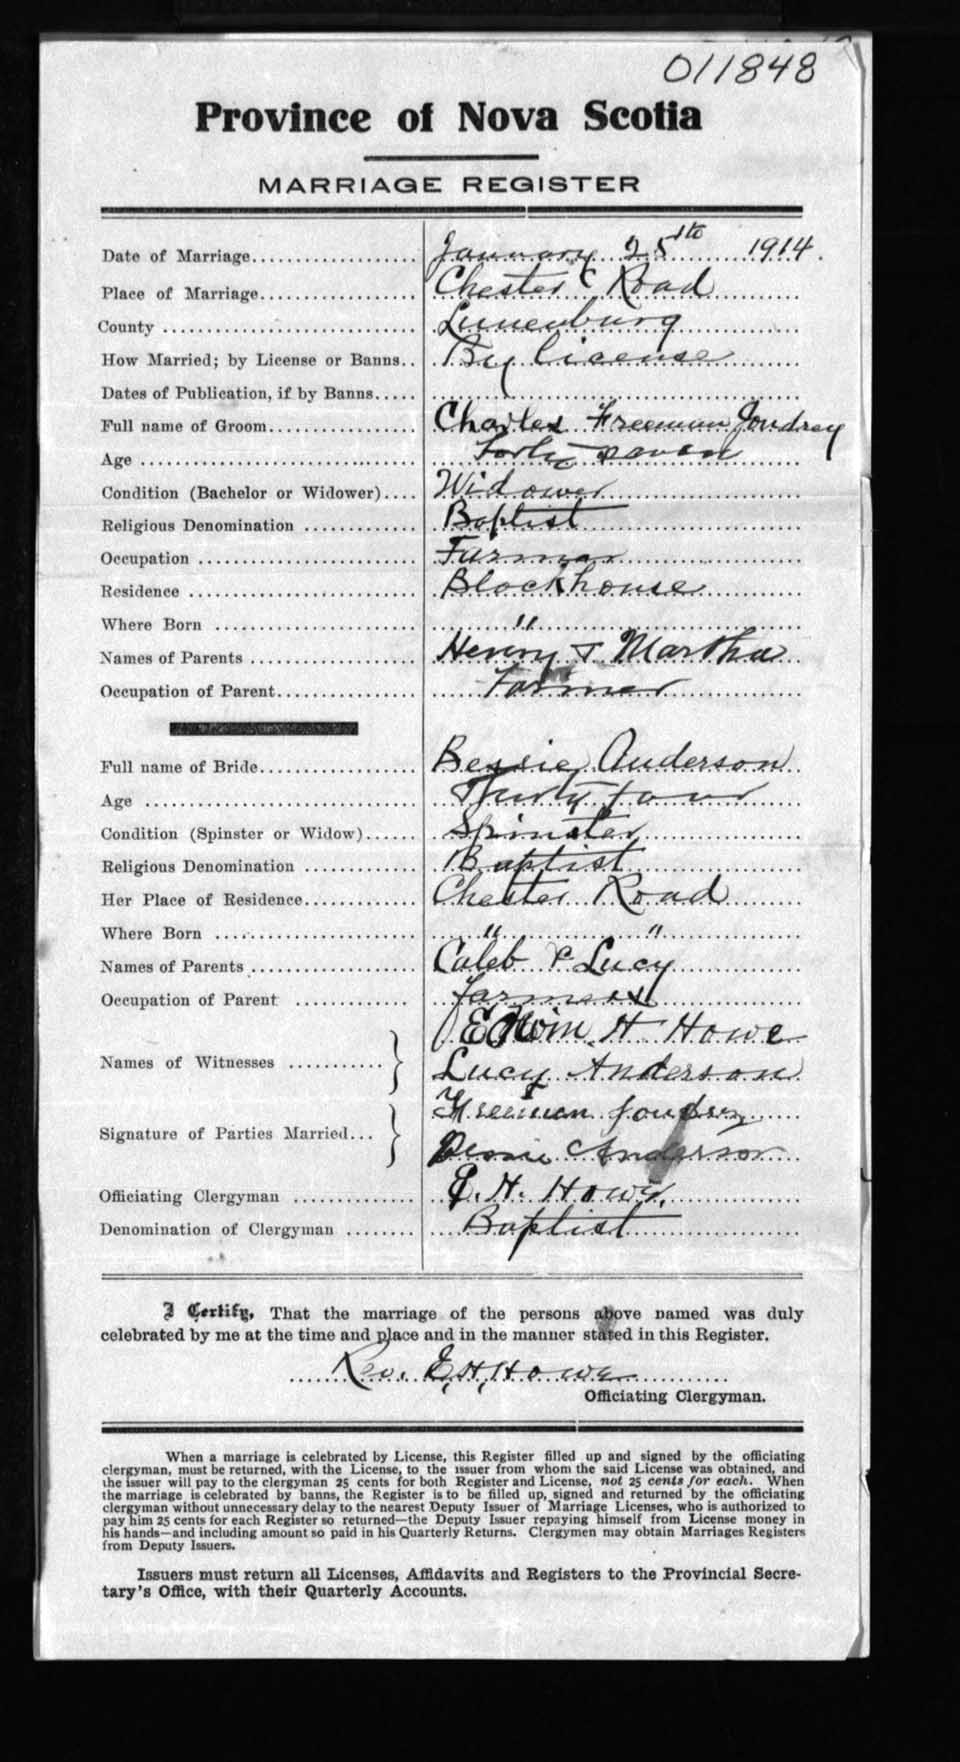 011848
Province of Nova Scotia
MARRIAGE REGISTER
Date of Marriage.................. January 25th 1914.
Place of Marriage................. Chester Road
County ........................... Lunenburg
How Married; by License or Banns.. By license
Dates of Publication, if by Banns.....
Full name of Groom................ Charles Freeman Joudrey
Age .............................. Forty Seven
Condition (Bachelor or Widower).... Widower
Religious Denomination ............ Baptist
Occupation ....................... Farmer
Residence ........................ Blockhouse
Where Born ...................... "
Names of Parents .................. Henry & Martha
Occupation of Parent............... Farmer
Full name of Bride................. Bessie Anderson
Age ............................. Thirty four
Condition (Spinster or Widow)...... Spinster
Religious Denomination ............ Baptist
Her Place of Residence............ Chester Road
Where Born ...................... " "
Names of Parents .................. Caleb & Lucy
Occupation of Parent ............. farmer
Names of Witnesses ........... } Edwin H Howe
Lucy Anderson
Signature of Parties Married... } Freeman Joudrey
Bessie Anderson
Officiating Clergyman .............. E. H. Howe.
Denomination of Clergyman ........ Baptist
I Certify, That the marriage of the persons above named was duly
celebrated by me at the time and place and in the manner stated in this Register.
Rev. E, H, Howe
Officiating Clergyman.
When a marriage is celebrated by License, this Register filled up and signed by the officiating
clergyman, must be returned, with the License, to the issuer from whom the said License was obtained, and
the issuer will pay to the clergyman 25 cents for both Register and License, not 25 cents for each. When
the marriage is celebrated by banns, the Register is to be filled up, signed and returned by the officiating
clergyman without unnecessary delay to the nearest Deputy Issuer of Marriage Licenses, who is authorized to
pay him 25 cents for each Register so returned—the Deputy Issuer repaying himself from License money in
his hands—and including amount so paid in his Quarterly Returns. Clergymen may obtain Marriages Registers
from Deputy Issuers.
Issuers must return all Licenses, Affidavits and Registers to the Provincial Secre-
tary's Office, with their Quarterly Accounts.